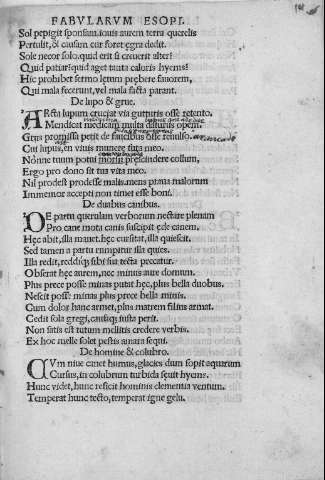 FABVLARVM ESOPI.
Sol pepigit sponsam. iouis aurem terra querelis
Pertulit, & causam cur foret ęgra dedit.
Sole necor solo. quid erit si creuerit alter?
Quid patiar? quid aget tanta caloris hyems?
Hic prohibet sermo lętum prębere fauorem,
Qui mala fecerunt, vel mala facta parant.
De lupo & grue.
ARcta lupum cruciat via gutturis osse retento.
Mendicat medicam multa daturus opem.
Grus promissa petit de faucibus osse reuulso.
Cui lupus, en viuis munere tuta meo.
Nonne tuum potui morsu pręscindere collum,
Ergo pro dono sit tua vita meo.
Nil prodest prodesse malis. mens praua malorum
Immemor accepti non timet esse boni.
De duabus canibus.
DE partu querulam verborum nectare plenam
Pro cane mota canis suscipit ęde canem.
Hęc abit, illa manet. hęc cursitat, illa quiescit.
Sed tamen a partu rumpitur illa quies.
Illa redit, reddiq; sibi sua tecta precatur.
Obserat hęc aurem, nec minus aure domum.
Plus prece posse minas putat hęc, plus bella duobus.
Nescit posse minas plus prece bella minis.
Cum dolor hanc armet, plus matrem filius armat.
Cedit sola gregi, causaq; iusta perit.
Non satis est tutum mellitis credere verbis.
Ex hoc melle solet pestis amara sequi.
De homine & colubro.
CVm niue canet humus, glacies dum sopit aquarum
Cursus, in colubrum turbida sęuit hyems.
Hunc videt, hunc reficit hominis clementia ventum.
Temperat hunc tecto, temperat igne gelu.